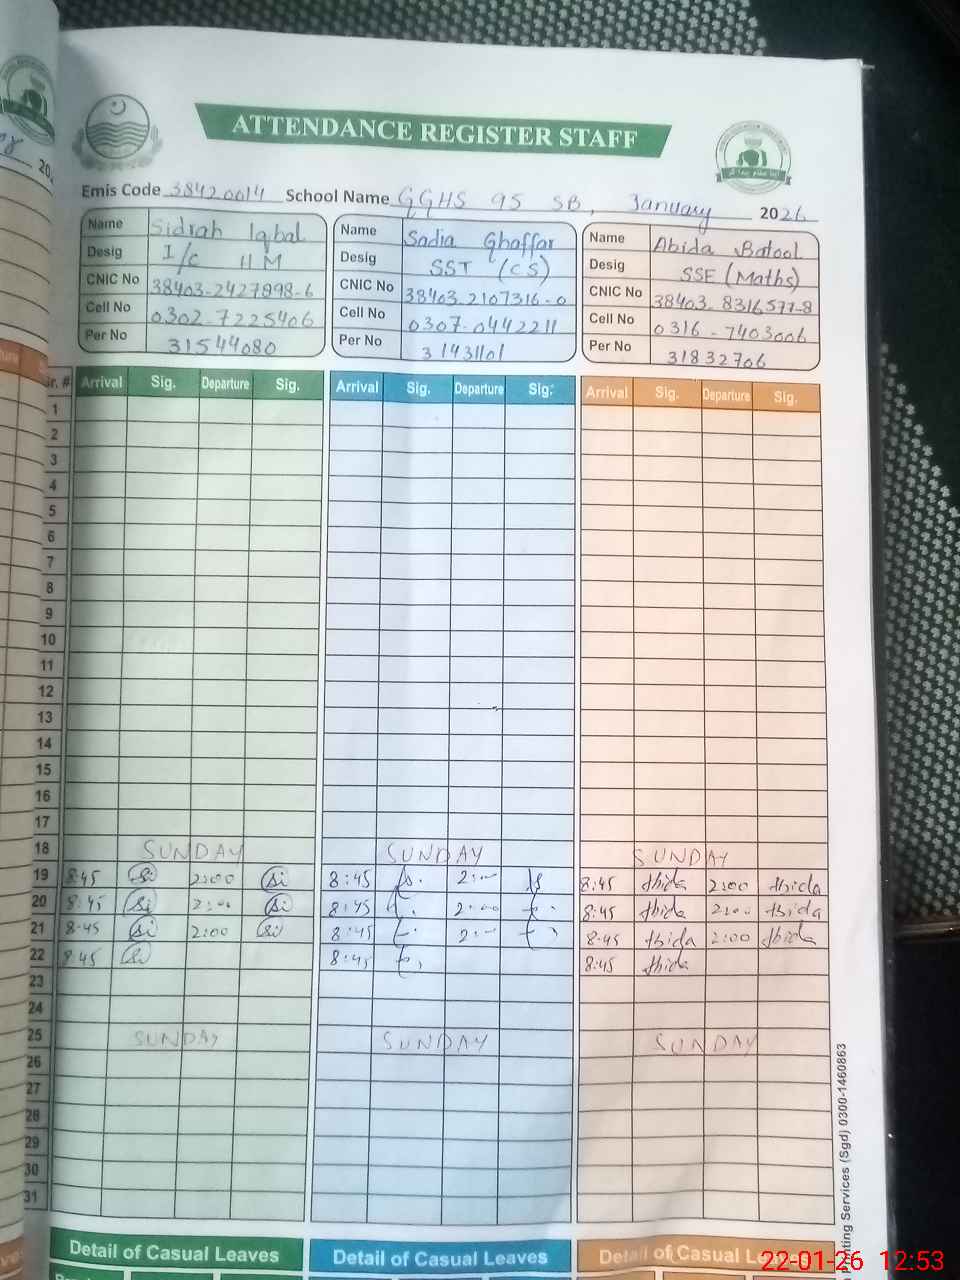 ATTENDANCE REGISTER STAFF
Emis Code 38420014 School Name GGHS 95 SB, January 2026
Name Sidrah Iqbal
Desig I/C HM
CNIC No 38403-2427898-6
Cell No 0302-7225406
Per No 31544080
Name Sadia Ghaffar
Desig SST (CS)
CNIC No 38403-2107316-0
Cell No 0307-0442211
Per No 31431101
Name Abida Batool
Desig SSE (Maths)
CNIC No 38403-8316577-8
Cell No 0316-7403006
Per No 31832706
Sr. # Arrival Sig. Departure Sig. Arrival Sig. Departure Sig. Arrival Sig. Departure Sig.
1
2
3
4
5
6
7
8
9
10
11
12
13
14
15
16
17
18 SUNDAY SUNDAY SUNDAY
19 8:45 Si 2:00 Si 8:45 2:00 8:45 Abida 2:00 Abida
20 8:45 Si 2:00 Si 8:45 2:00 8:45 Abida 2:00 Abida
21 8:45 Si 2:00 Si 8:45 2:00 8:45 Abida 2:00 Abida
22 8:45 Si 8:45 8:45 Abida
23
24
25 SUNDAY SUNDAY SUNDAY
26
27
28
29
30
31
Detail of Casual Leaves Detail of Casual Leaves Detail of Casual Leaves
Printing Services (Sgd) 0300-1460863
22-01-26 12:53